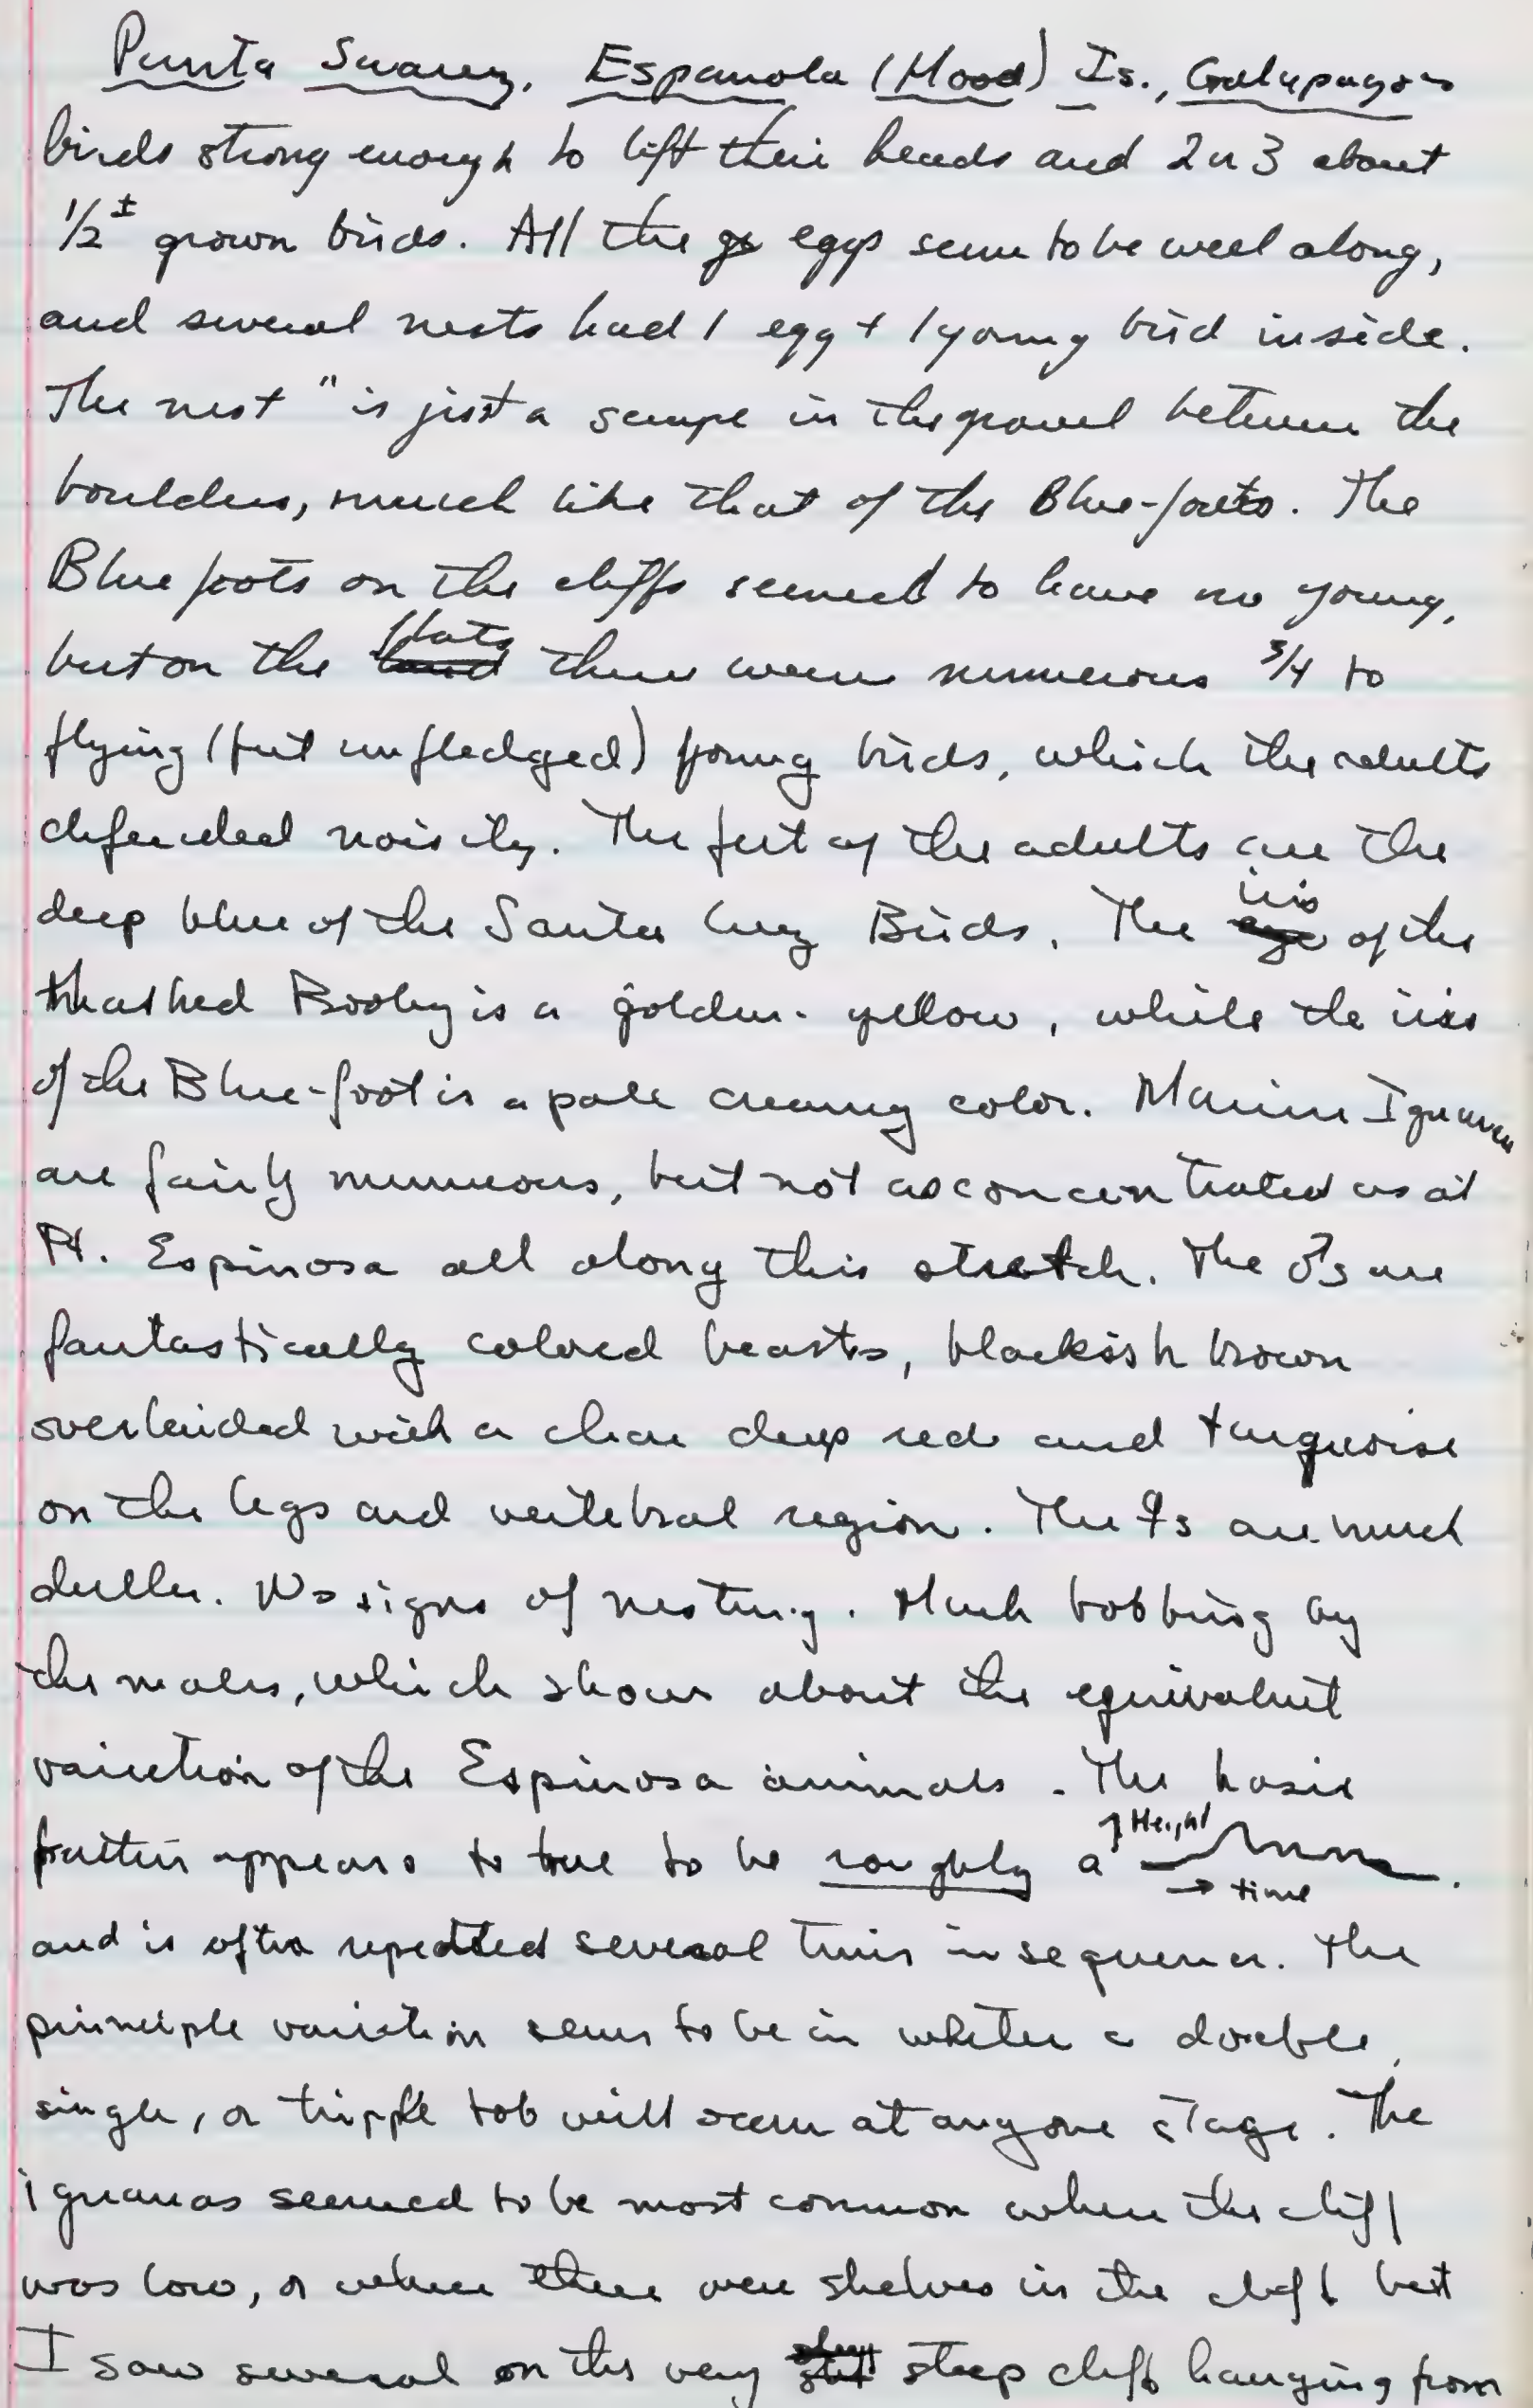 Punta Suarez, Espanola (Hood) Is., Galapagos
birds strong enough to lift their heads and 2 or 3 about
1/2± grown birds. All the eggs seem to be well along,
and several nests had 1 egg + 1 young bird inside.
The nest" is just a scrape in the gravel between the
boulders, much like that of the Blue-foots. The
Blue foots on the cliffs seemed to have no young,
but on the flats there were numerous 3/4 to
flying (but unfledged) young birds, which the adults
defended noisily. The feet of the adults are the
deep blue of the Santa Cruz Birds. The iris of the
Masked Booby is a golden-yellow, while the iris
of the Blue-foot is a pale creamy color. Marine Iguanas
are fairly numerous, but not as concentrated as at
Pt. Espinosa all along this stretch. The ♂s are
fantastically colored beasts, blackish brown
overlaided with a clear deep red and turquoise
on the legs and vertebral region. The ♀s are much
duller. No signs of nesting. Much bobbing by
the males, which show about the equivalent
variation of the Espinosa animals. The basic
pattern appears to me to be roughly a ↑Height → time.
and is often repeated several times in sequence. The
principle variation seems to be in whether a double,
single, or tripple bob will occur at anyone stage. The
iguanas seemed to be most common where the cliff
was low, or where there were shelves in the cliff but
I saw several on the very steep cliff hanging from